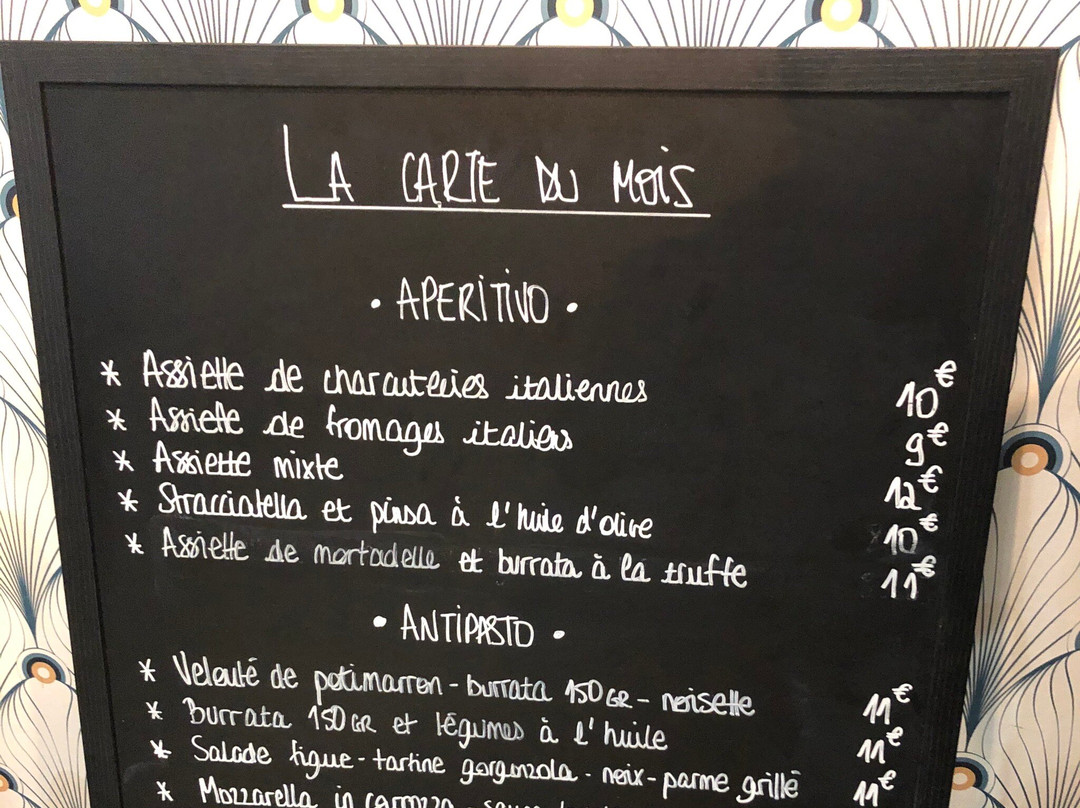 LA CARTE DU MOIS
• APERITIVO •
* Assiette de charcuteries italiennes 10€
* Assiette de fromages italiens 9€
* Assiette mixte 12€
* Stracciatella et pinsa à l'huile d'olive 10€
* Assiette de mortadelle et burrata à la truffe 11€
• ANTIPASTO •
* Velouté de potimarron - burrata 150GR - noisette 11€
* Burrata 150GR et légumes à l'huile 11€
* Salade figue - tartine gorgonzola - noix - parme grillé 11€
* Mozzarella in carrozza